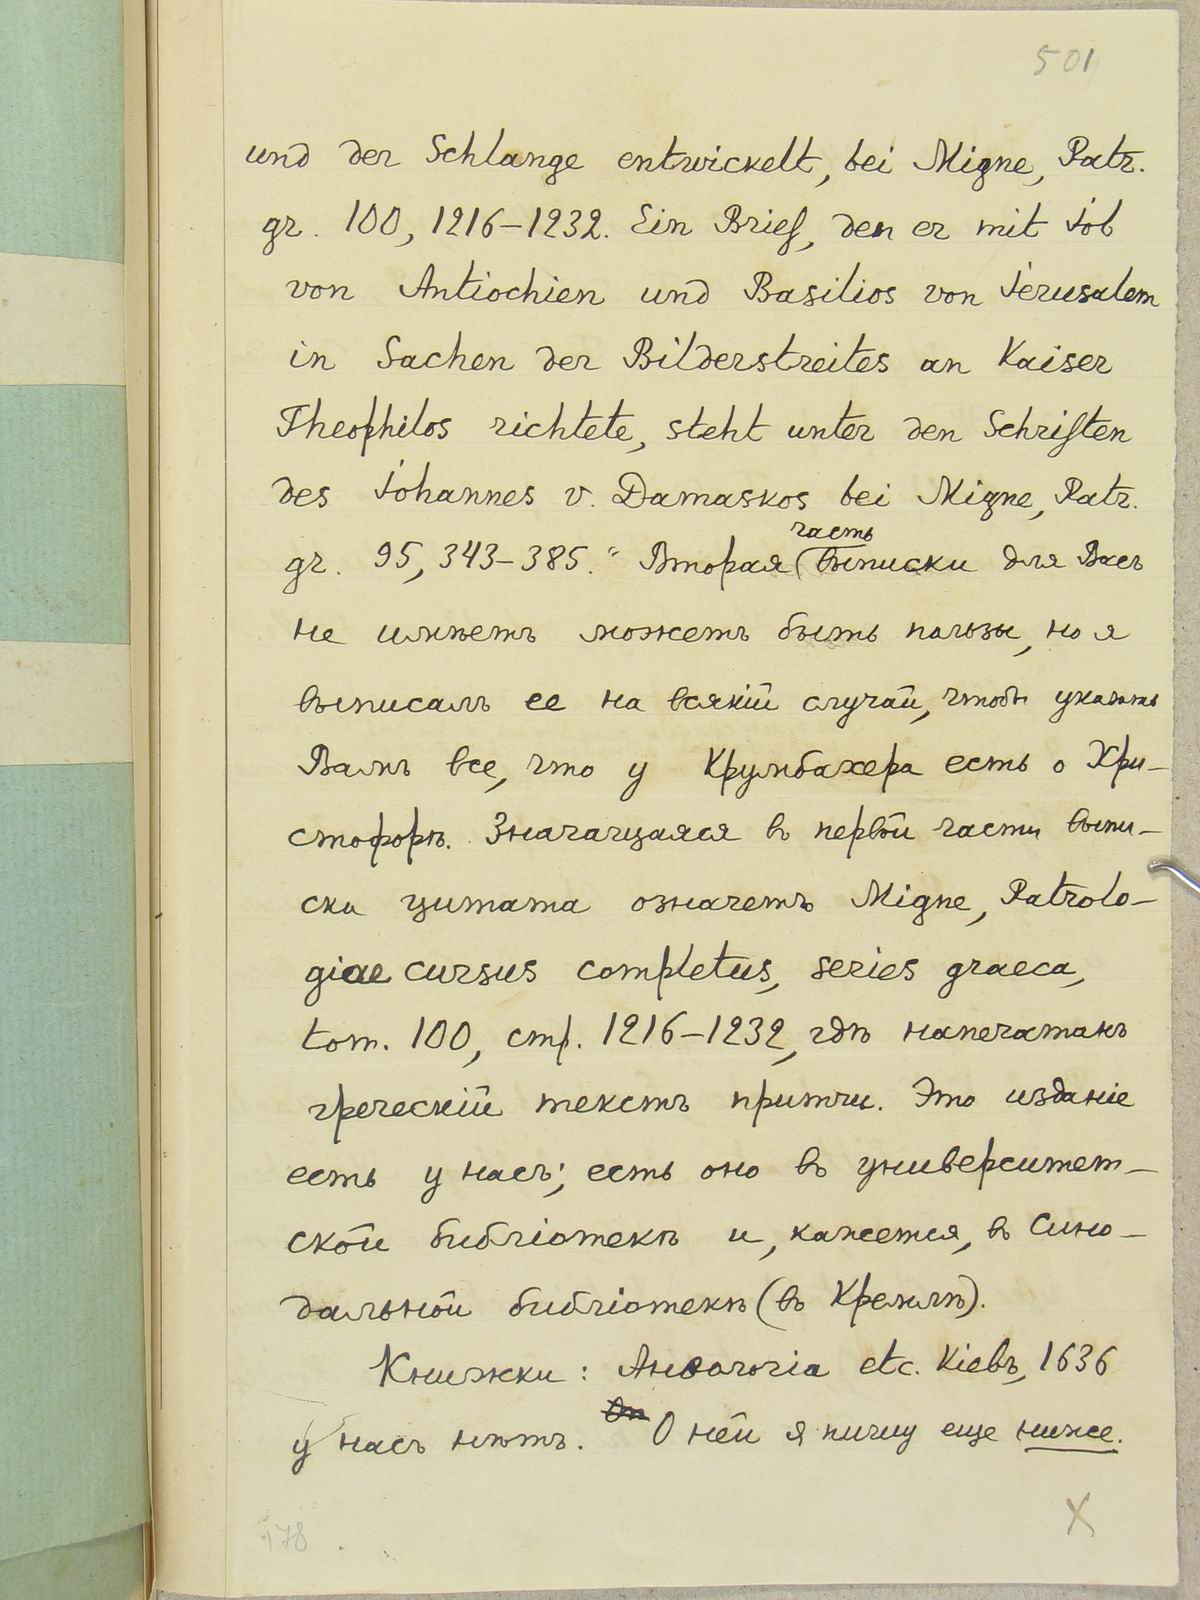 501
und der Schlange entwickelt, bei Migne, Patr.
gr. 100, 1216–1232. Ein Brief, den er mit Job
von Antiochien und Basilios von Jerusalem
in Sachen der Bilderstreites an Kaiser
Theophilos richtete, steht unter den Schriften
des Johannes v. Damaskos bei Migne, Patr.
часть
gr. 95, 343–385." Вторая (выписки для Васъ
не имѣетъ можетъ быть пользы, но я
выписалъ ее на всякій случай, чтобы указать
Вамъ все, что у Крумбахера есть о Хри-
стофорѣ. Значащаяся въ первой части выпи-
ски цитата означетъ Migne, Patrolo-
giae cursus completus, series graeca,
tom. 100, стр. 1216–1232, гдѣ напечатанъ
греческій текстъ притчи. Это изданіе
есть у насъ; есть оно въ университет-
ской библіотекѣ и, кажется, въ Сино-
дальной библіотекѣ (въ Кремлѣ).
Книжки: Анѳологіа etc. Кіевъ, 1636
у насъ нѣтъ. О ней я пишу еще ниже.
178
X